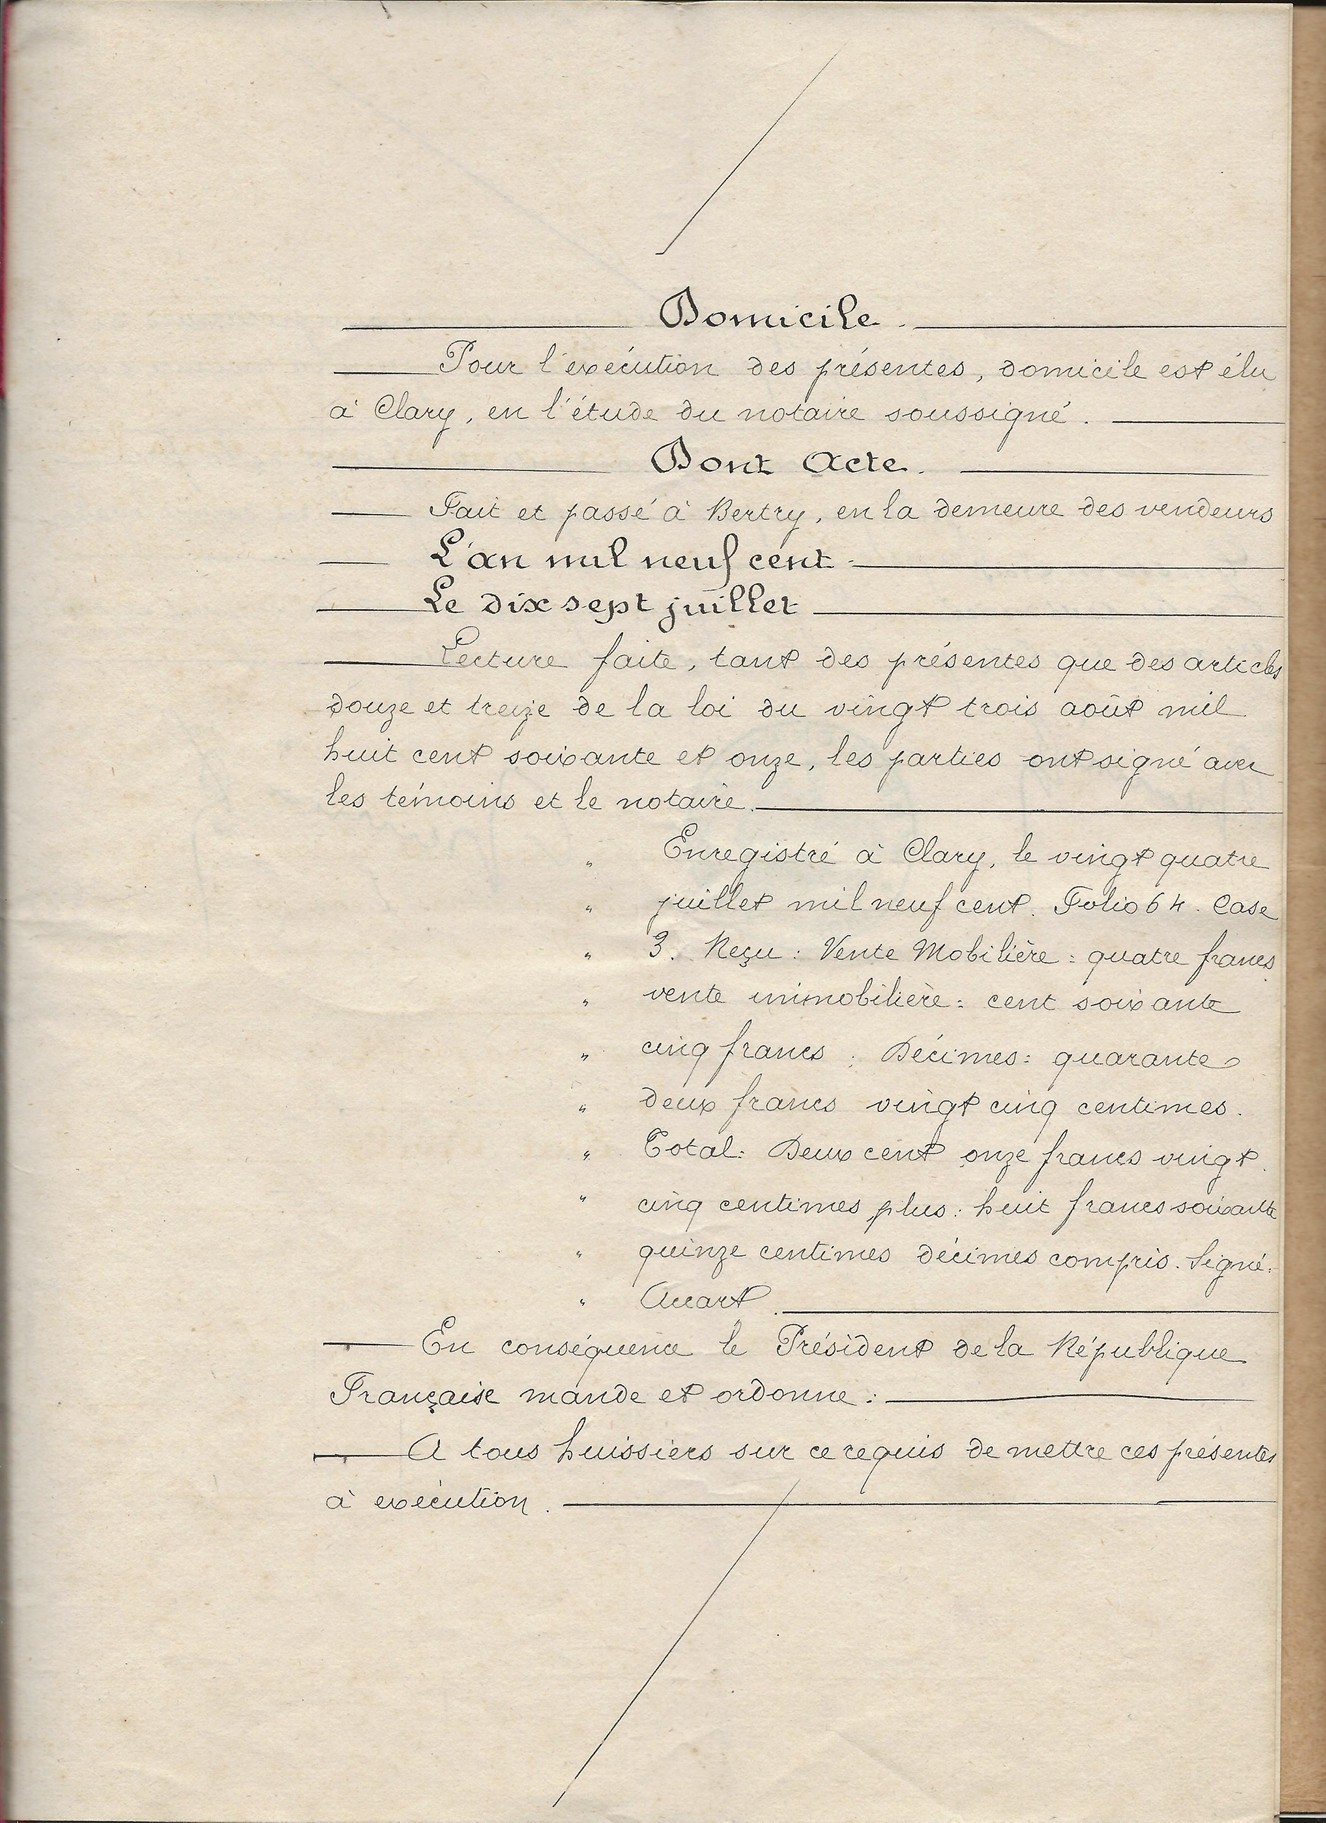 Domicile.
Pour l'exécution des présentes, domicile est élu
à Clary, en l'étude du notaire soussigné.
Dont Acte.
Fait et passé à Bertry, en la demeure des vendeurs
L'an mil neuf cent.
Le dix sept juillet
Lecture faite, tant des présentes que des articles
douze et treize de la loi du vingt trois août mil
huit cent soixante et onze, les parties ont signé avec
les témoins et le notaire.
" Enregistré à Clary, le vingt quatre
" juillet mil neuf cent. Folio 64. Case
" 3. Reçu : Vente Mobilière : quatre francs
" vente immobilière : cent soixante
" cinq francs ; Décimes : quarante
" deux francs vingt cinq centimes.
" Total : Deux cent onze francs vingt
" cinq centimes, plus : huit francs soixante
" quinze centimes décimes compris. Signé :
"
En conséquence le Président de la République
Française mande et ordonne :
A tous huissiers sur ce requis de mettre ces présentes
à exécution.